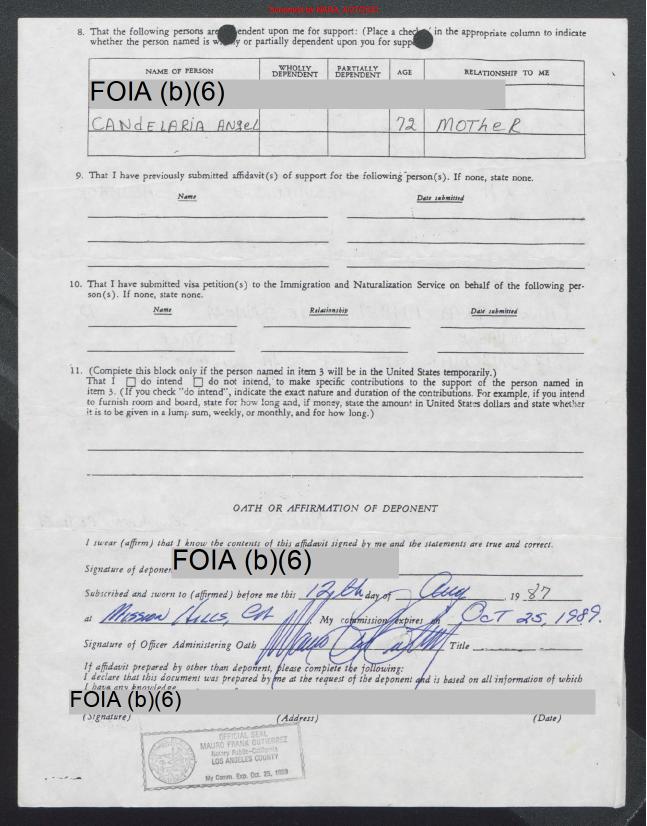 8. That the following persons are dependent upon me for support: (Place a check in the appropriate column to indicate
whether the person named is wholly or partially dependent upon you for support.
NAME OF PERSON WHOLLY DEPENDENT PARTIALLY DEPENDENT AGE RELATIONSHIP TO ME
FOIA (b)(6)
CANdELARIA ANgEL 72 MOTheR
9. That I have previously submitted affidavit(s) of support for the following person(s). If none, state none.
Name Date submitted
10. That I have submitted visa petition(s) to the Immigration and Naturalization Service on behalf of the following per-
son(s). If none, state none.
Name Relationship Date submitted
11. (Complete this block only if the person named in item 3 will be in the United States temporarily.)
That I ☐ do intend ☐ do not intend, to make specific contributions to the support of the person named in
item 3. (If you check "do intend", indicate the exact nature and duration of the contributions. For example, if you intend
to furnish room and board, state for how long and, if money, state the amount in United States dollars and state whether
it is to be given in a lump sum, weekly, or monthly, and for how long.)
OATH OR AFFIRMATION OF DEPONENT
I swear (affirm) that I know the contents of this affidavit signed by me and the statements are true and correct.
Signature of deponent FOIA (b)(6)
Subscribed and sworn to (affirmed) before me this 12th day of Aug, 19 87
at Mission Hills, Ca My commission expires on Oct 25, 1989.
Signature of Officer Administering Oath Title
If affidavit prepared by other than deponent, please complete the following:
I declare that this document was prepared by me at the request of the deponent and is based on all information of which
I have any knowledge.
FOIA (b)(6)
(Signature) (Address) (Date)
OFFICIAL SEAL
MAURO FRANK GUTIERREZ
Notary Public-California
LOS ANGELES COUNTY
My Comm. Exp. Oct. 25, 1989